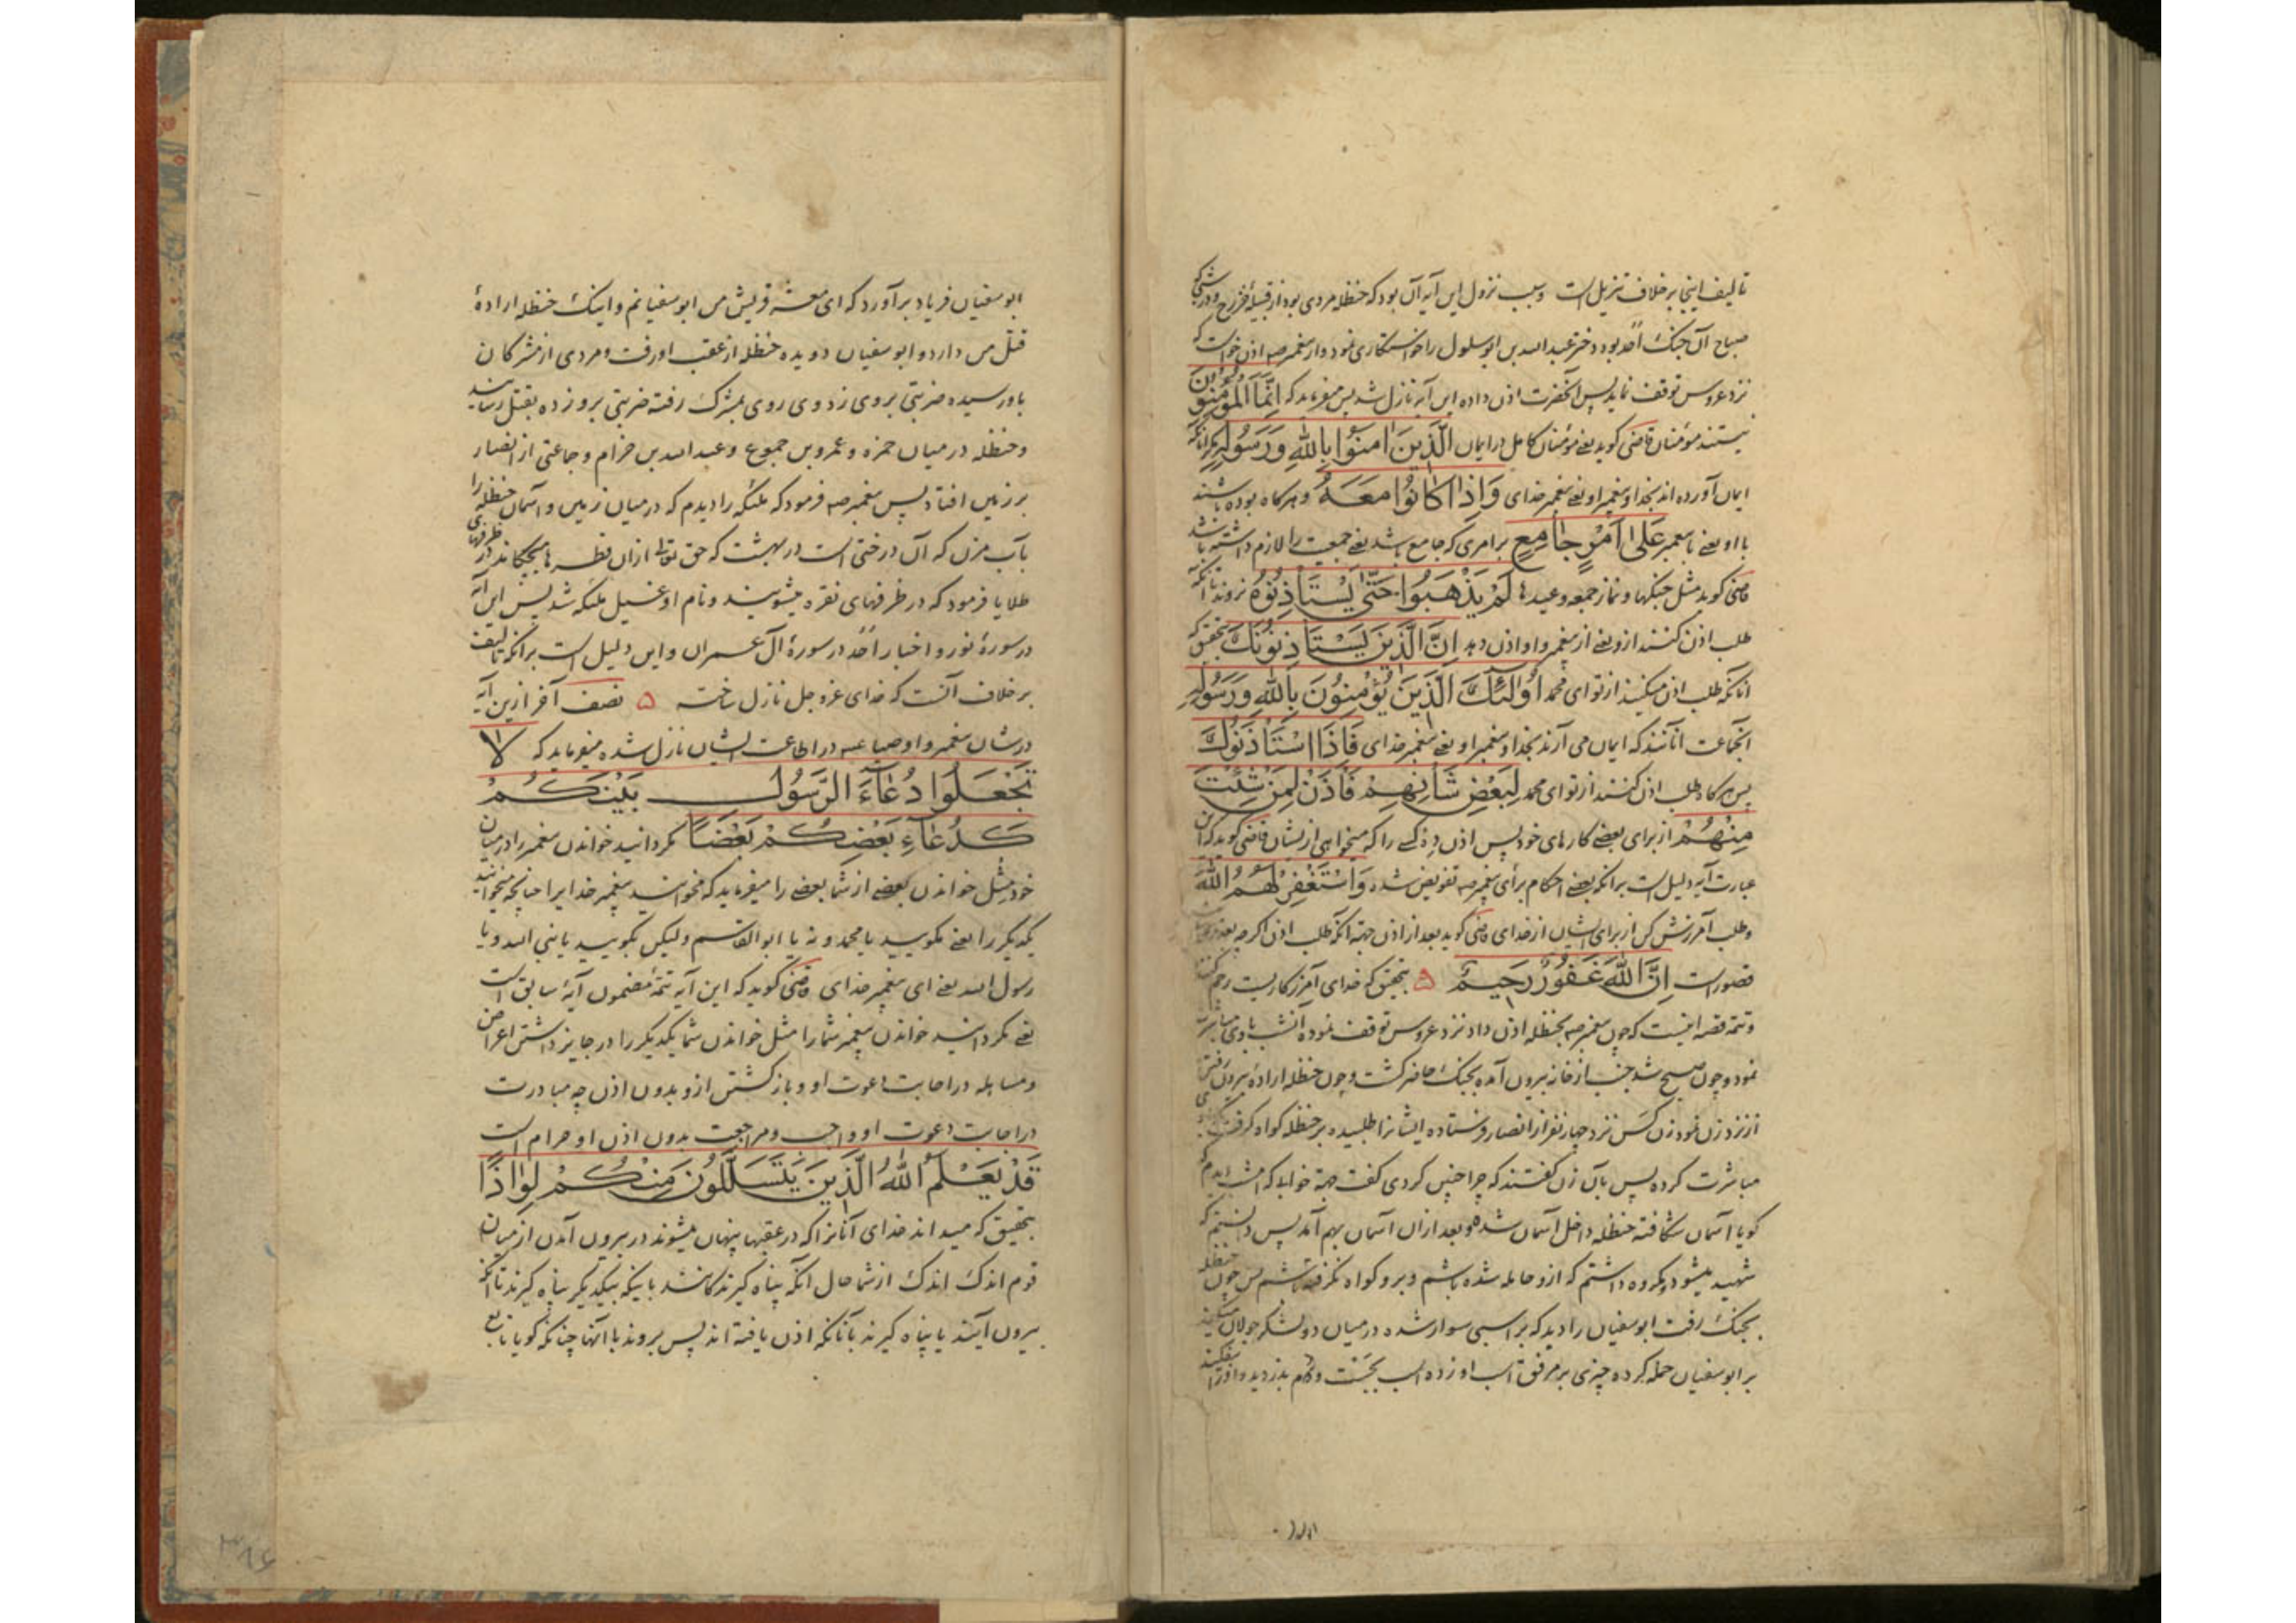 تالیف اینجا برخلاف تنزیل است و سبب نزول این آیه آن بود که حنظله مردی بود از قبیلهٔ خزرج و در شبی که
صباح آن جنگ احد بود دختر عبدالله بن ابو سلول را خواستکاری نمود و از پیغمبر صه اذن خواست که
نزد عروس توقف نماید پس آنحضرت اذن داده این آیه نازل شد پس میفرماید که اِنَّمَا الْمُؤْمِنُونَ
نیستند مؤمنان قاضی کوید یعنے مؤمنان کامل در ایمان الَّذِینَ اٰمَنُوا بِاللّٰهِ وَرَسُولِهِ مکر آنانکه
ایمان آورده اند بخدا و پیغمبر او یعنے پیغمبر خدای وَاِذَا کَانُوا مَعَهُ و هرکاه بوده باشند
با او یعنے با پیغمبر عَلٰی اَمْرٍ جَامِعٍ بر امری که جامع باشد یعنے جمعیت را لازم داشته باشد
قاضی کوید مثل جنکها و نماز جمعه و عیدها لَمْ یَذْهَبُوا حَتّٰی یَسْتَأْذِنُوهُ نروند تا آنکه
طلب اذن کنند ازو یعنے از پیغمبر و او اذن دهد اِنَّ الَّذِینَ یَسْتَأْذِنُونَکَ بتحقیق که
آنانکه طلب اذن میکنند از تو ای محمد اُولٰئِکَ الَّذِینَ یُؤْمِنُونَ بِاللّٰهِ وَرَسُولِهِ
آنجماعت آنانند که ایمان می آرند بخدا و پیغمبر او یعنے پیغمبر خدای فَاِذَا اسْتَأْذَنُوکَ
پس هرکاه طلب اذن کنند از تو ای محمد لِبَعْضِ شَأْنِهِمْ فَأْذَنْ لِمَنْ شِئْتَ
مِنْهُمْ از برای بعضے کارهای خود پس اذن ده کسے را که میخواهی از یشان قاضی کوید که این
عبارت آیه دلیل است برانکه بعضے احکام برأی پیغمبر صه تفویض شده وَاسْتَغْفِرْ لَهُمُ اللّٰهَ
و طلب آمرزش کن از برای ایشان از خدای قاضی کوید بعد از اذن جهته آنکه طلب اذن اکرچه بعذر
قصور است اِنَّ اللّٰهَ غَفُورٌ رَحِیمٌ ۵ بتحقیق که خدای آمرزکاریست رحم کننده
و تتمه قصه اینست که چون پیغمبر صه بحنظله اذن داد نزد عروس توقف نموده آنشب با وی مباشرت
نمود و چون صبح شد جنب از خانه بیرون آمده بجنک حاضر کشت و چون حنظله ارادهٔ بیرون رفتن
از نزد زن نمود زن کس نزد چهار نفر از انصار فرستاده ایشانرا طلبیده بر حنظله کواه کرفت که
مباشرت کرده پس بآن زن کفتند که چرا چنین کردی کفت جهته خوابی که امشب دیدم که
کویا آسمان شکافته حنظله داخل آسمان شد و بعد از آن آسمان بهم آمد پس دانستم که
شهید میشود و مکروه داشتم که ازو حامله شده باشم و برو کواه نکرفته باشم پس چون حنظله
بجنک رفت ابوسفیان را دید که بر اسبی سوار شده در میان دو لشکر جولان میکند
بر ابوسفیان حمله کرده چیزی بر مرفق اسب او زده اسب بجست و او را بیفکند
ابوسفیان فریاد برآورد که ای معشر قریش من ابوسفیانم و اینک حنظله ارادهٔ
قتل من دارد و ابوسفیان دویده حنظله از عقب او رفت و مردی از مشرکان
باو رسیده ضربتی بر وی زد و وی روی بمشرک رفته ضربتی برو زده بقتل رسانید
و حنظله در میان حمزه و عمرو بن جموع و عبدالله بن خزام و جماعتی از انصار
بر زمین افتاد پس پیغمبر صه فرمود که ملئکه را دیدم که در میان زمین و آسمان حنظله را
بآب مزن که آن درختی است در بهشت که حق تعالی ازان قطره ها میچکاند در ظرفهای
طلا یا فرمود که در ظرفهای نقره میشویند و نام او غسیل ملئکه شد پس این آیه
در سورهٔ نور و اخبار احد در سورهٔ آل عمران و این دلیل است برانکه تالیف
برخلاف آنست که خدای عزوجل نازل ساخته ۵ نصف آخر ازین آیه
در شان پیغمبر و اوصیا عه در اطاعت ایشان نازل شده میفرماید که لَا
تَجْعَلُوا دُعَاءَ الرَّسُولِ بَیْنَکُمْ
کَدُعَاءِ بَعْضِکُمْ بَعْضًا مکردانید خواندن پیغمبر را در میان
خود مثل خواندن بعضے از شما بعضے را میفرماید که مخوانید پیغمبر خدا یرا چنانچه میخوانید
یکدیکر را یعنے مکویید یا محمد و نه یا ابوالقاسم ولیکن بکویید یا نبی الله و یا
رسول الله یعنے ای پیغمبر خدای قاضی کوید که این آیه تتمهٔ مضمون آیهٔ سابق است
یعنے مکردانید خواندن پیغمبر شما را مثل خواندن شما یکدیکر را در جایز داشتن اعراض
و مساهله در اجابت دعوت او و بازکشتن ازو بدون اذن چه مبادرت
در اجابت دعوت او واجب و مراجعت بدون اذن او حرام است
قَدْ یَعْلَمُ اللّٰهُ الَّذِینَ یَتَسَلَّلُونَ مِنْکُمْ لِوَاذًا
بتحقیق که میداند خدای آنانرا که در عقبها پنهان میشوند در بیرون آمدن از میان
قوم اندک اندک از شما حال آنکه پناه کیرندکانند باینکه بیکدیکر پناه کیرند تا آنکه
بیرون آیند یا پناه کیرند بآنانکه اذن یافته اند پس بروند با آنها چنانکه کویا تابع